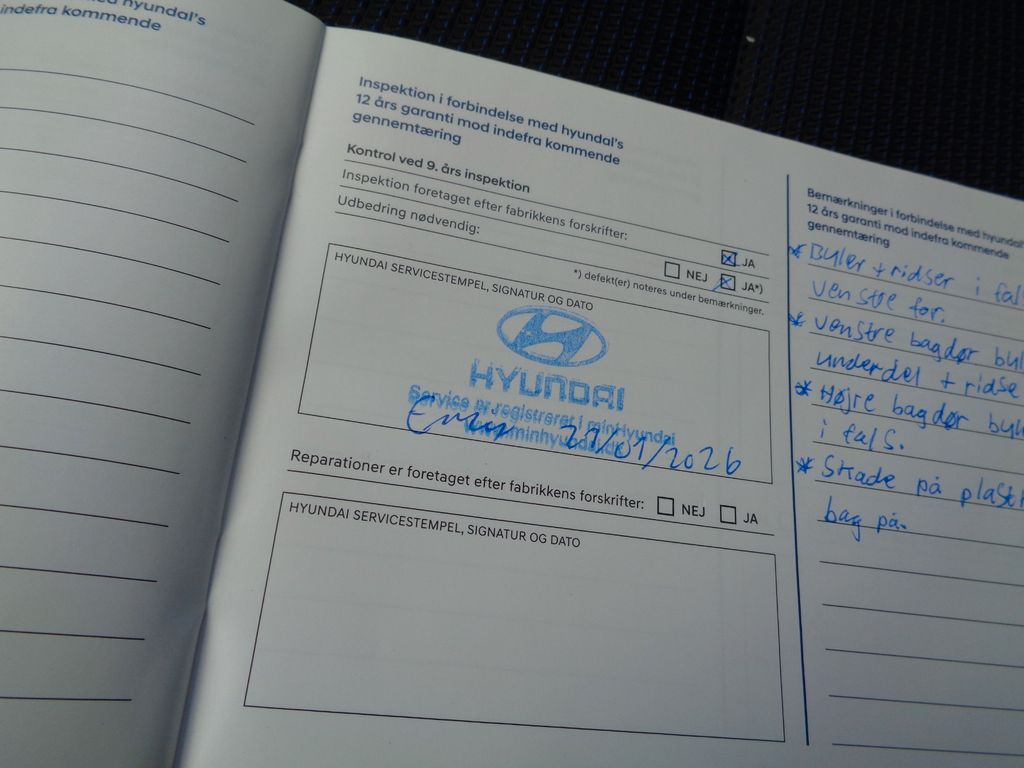 hyundai's
indefra kommende
Inspektion i forbindelse med hyundai's
12 års garanti mod indefra kommende
gennemtæring
Kontrol ved 9. års inspektion
Inspektion foretaget efter fabrikkens forskrifter:
JA
Udbedring nødvendig:
NEJ JA*)
*) defekt(er) noteres under bemærkninger.
HYUNDAI SERVICESTEMPEL, SIGNATUR OG DATO
HYUNDAI
Service er registreret i minHyundai
/01/2026
Reparationer er foretaget efter fabrikkens forskrifter: NEJ JA
HYUNDAI SERVICESTEMPEL, SIGNATUR OG DATO
Bemærkninger i forbindelse med hyundai's
12 års garanti mod indefra kommende
gennemtæring
* Buler + ridser i fal
venstre for.
* Venstre bagdør bul
underdel + ridse
* Højre bagdør bul
i fals.
* Skade på plast
bag på.